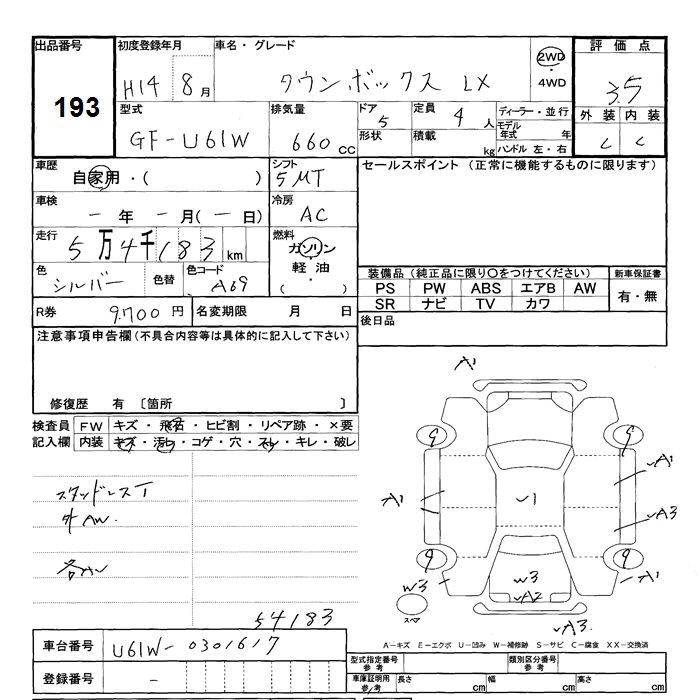 出品番号 初度登録年月 車名・グレード 評価点
193 H14 8月 タウンボックス LX 2WD・4WD 3.5
型式 排気量 ドア 定員 ディーラー・並行 外装 内装
GF-U61W 660cc 5 4人 モデル年式 年 C C
形状 積載 kg ハンドル 左・右
車歴 自家用・( ) シフト 5MT セールスポイント (正常に機能するものに限ります)
車検 -年 -月(-日) 冷房 AC
走行 5万4千183km 燃料 ガソリン・軽油・( )
色 シルバー 色替 色コード A69
装備品 (純正品に限り○をつけてください) 新車保証書
PS PW ABS エアB AW 有・無
SR ナビ TV カワ
R券 9,700円 名変期限 月 日 後日品
注意事項申告欄 (不具合内容等は具体的に記入して下さい)
修復歴 有 [箇所 ]
検査員記入欄 FW キズ・飛石・ヒビ割・リペア跡・×要
内装 キズ・汚レ・コゲ・穴・スレ・キレ・破レ
A1
9 9
スタッドレスT
外AW.
A1 √1 √A1
√A3
9 9
W3 W3 √A1
√A2
スペア
54183
√A3.
A-キズ E-エクボ U-凹み W-補修跡 S-サビ C-腐食 XX-交換済
車台番号 U61W-0301617
型式指定番号 参考 類別区分番号 参考
登録番号 -
車庫証明用 参考 長さ cm 幅 cm 高さ cm